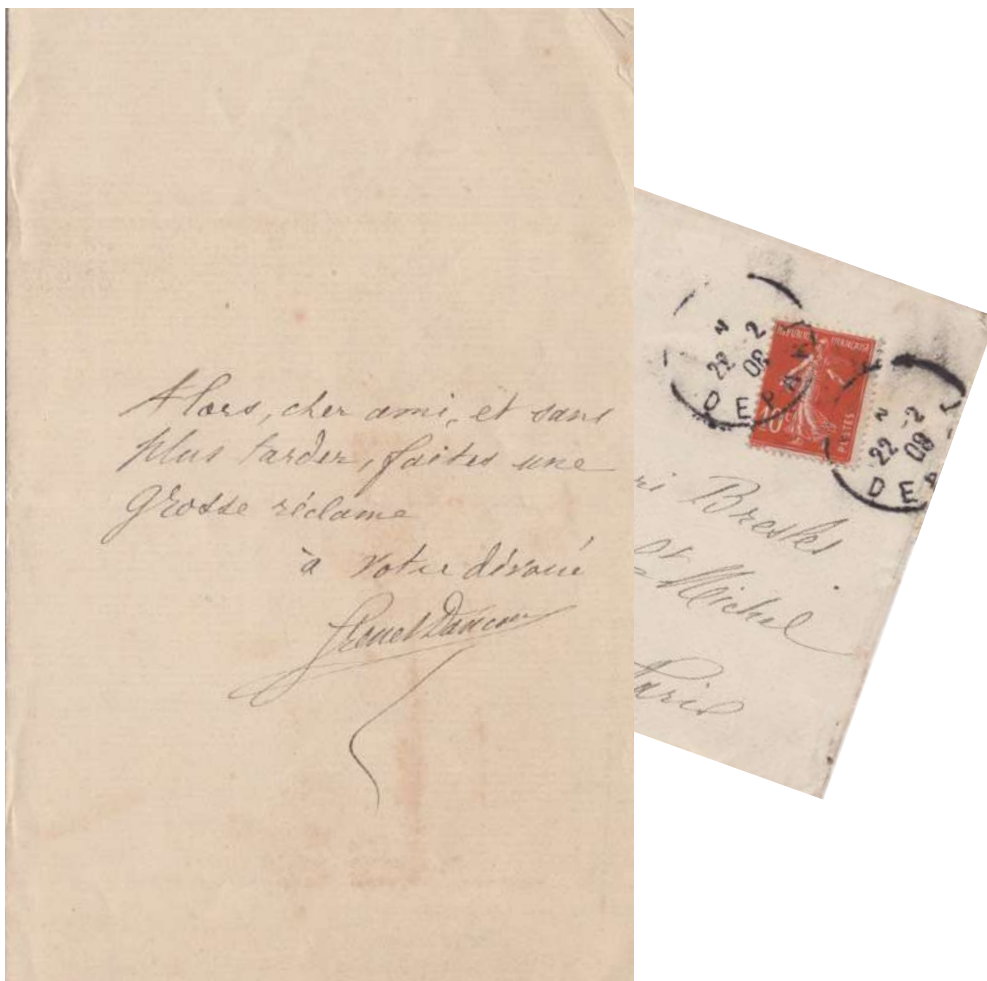 Alors, cher ami, et sans
plus tarder, faites une
grosse réclame
à votre dévoué
Lionel Dancour
22 -2
08
DEPART
RÉPUBLIQUE FRANÇAISE
10c
POSTES
22 -2
08
DEPA
ri Bresles
St Michel
Paris